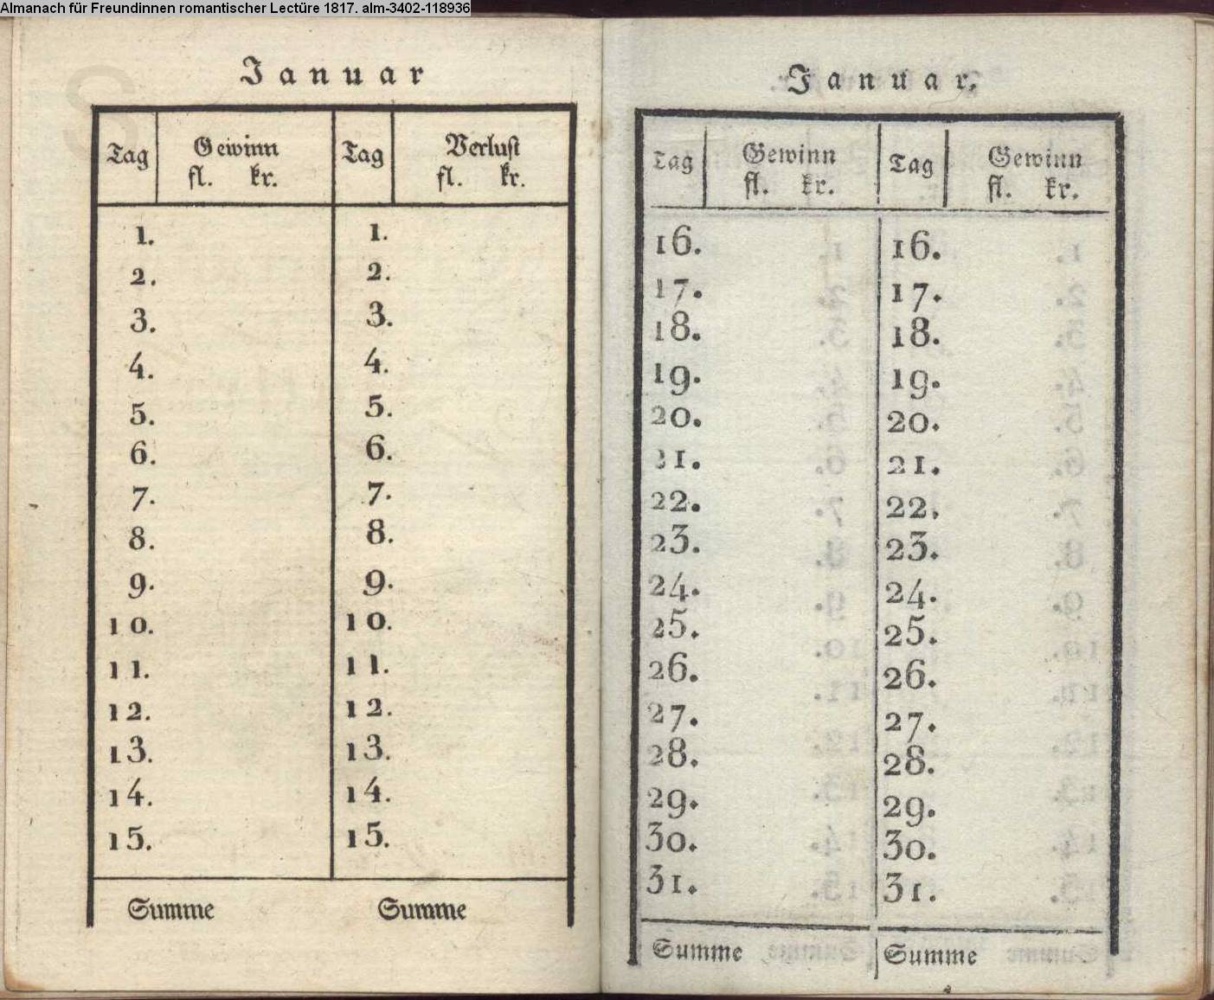 Almanach für Freundinnen romantischer Lectüre 1817. alm-3402-118936
Januar
Tag Gewinn Tag Verlust
fl. kr. fl. kr.
1. 1.
2. 2.
3. 3.
4. 4.
5. 5.
6. 6.
7. 7.
8. 8.
9. 9.
10. 10.
11. 11.
12. 12.
13. 13.
14. 14.
15. 15.
Summe Summe
Januar.
Tag Gewinn Tag Gewinn
fl. kr. fl. kr.
16. 16.
17. 17.
18. 18.
19. 19.
20. 20.
21. 21.
22. 22.
23. 23.
24. 24.
25. 25.
26. 26.
27. 27.
28. 28.
29. 29.
30. 30.
31. 31.
Summe Summe